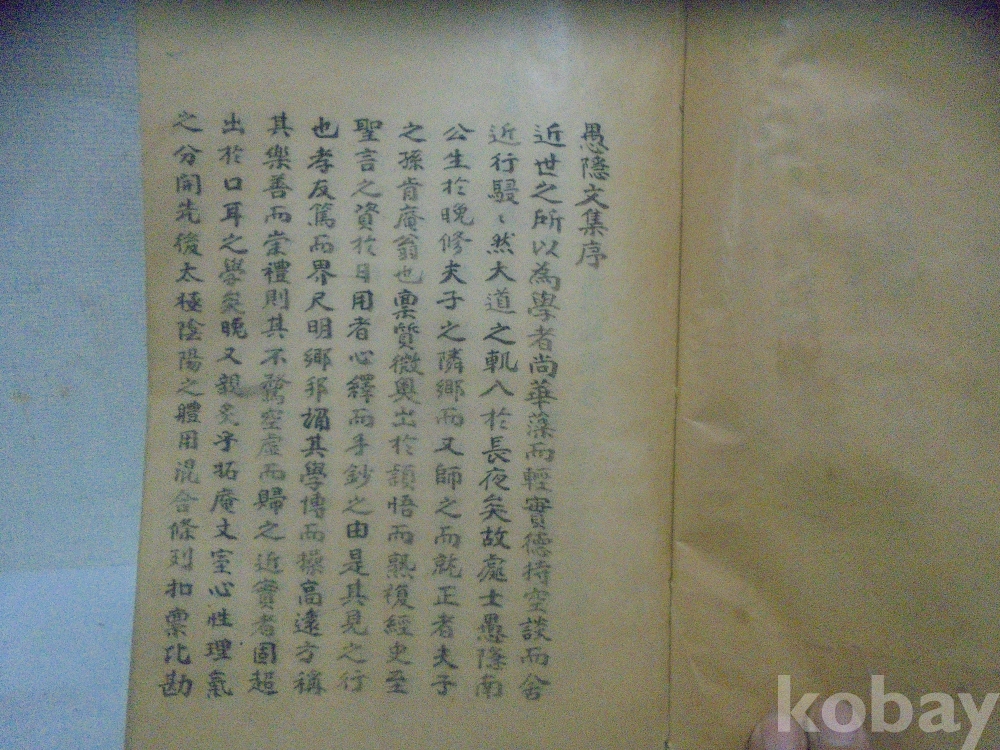 愚隱文集序
近世之所以為學者尚華藻而輕實德持空談而舍
近行駸〻然大道之軌入於長夜矣故處士愚隱南
公生於晚修夫子之隣鄉而又師之而就正者夫子
之孫肯庵翁也稟質微奧出於穎悟而熟複經史至
聖言之資於日用者心繹而手鈔之由是其見之行
也孝友篤而界尺明鄉邦謂其學傳而操高遠方稱
其樂善而崇禮則其不騖空虛而歸之近實者固超
出於口耳之學矣晚又親炙乎拓庵文室心性理氣
之分開先後太極陰陽之體用混合條列扣稟比勘
kobay